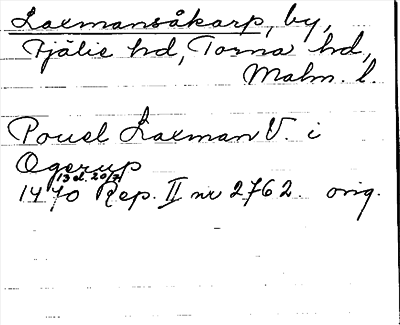 Laxmansåkarp, by,
Fjälie hd, Torna hd,
Malm. l.
Pouel Laxman V. i
Ogerup
13 d. 20/7
1470 Rep. II nr 2762. orig.